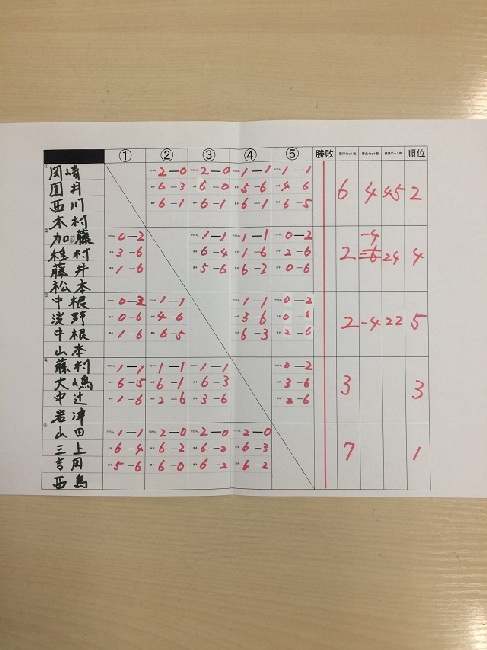 ① ② ③ ④ ⑤ 勝敗 順位
岡崎 2-0 2-0 1-1 1-1
国井 6-3 6-0 5-6 4 6 6 4 45 2
西川 6-1 6-1 6-1 6-5
木村
加藤 0-2 1-1 1-1 0-2 -4
杉村 3-6 6-4 1-6 2-6 2 24 4
藤井 1-6 5-6 6-2 0-6
松本
中根 0-2 1-1 1-1 0-2
淡野 0-6 4 6 3 6 0-6 2 -4 22 5
牛根 1 6 6-5 6-3 2-6
山本
藤村 1-1 1-1 1-1 0-2
大嶋 6-5 6-1 6-3 3-6 3 3
中辻 1-6 2-6 3-6 2-6
岩津
山田 1-1 2-0 2-0 2-0
三上 6-4 6-2 6-2 6-3 7 1
吉田 5-6 6-0 6-2 6-2
西島